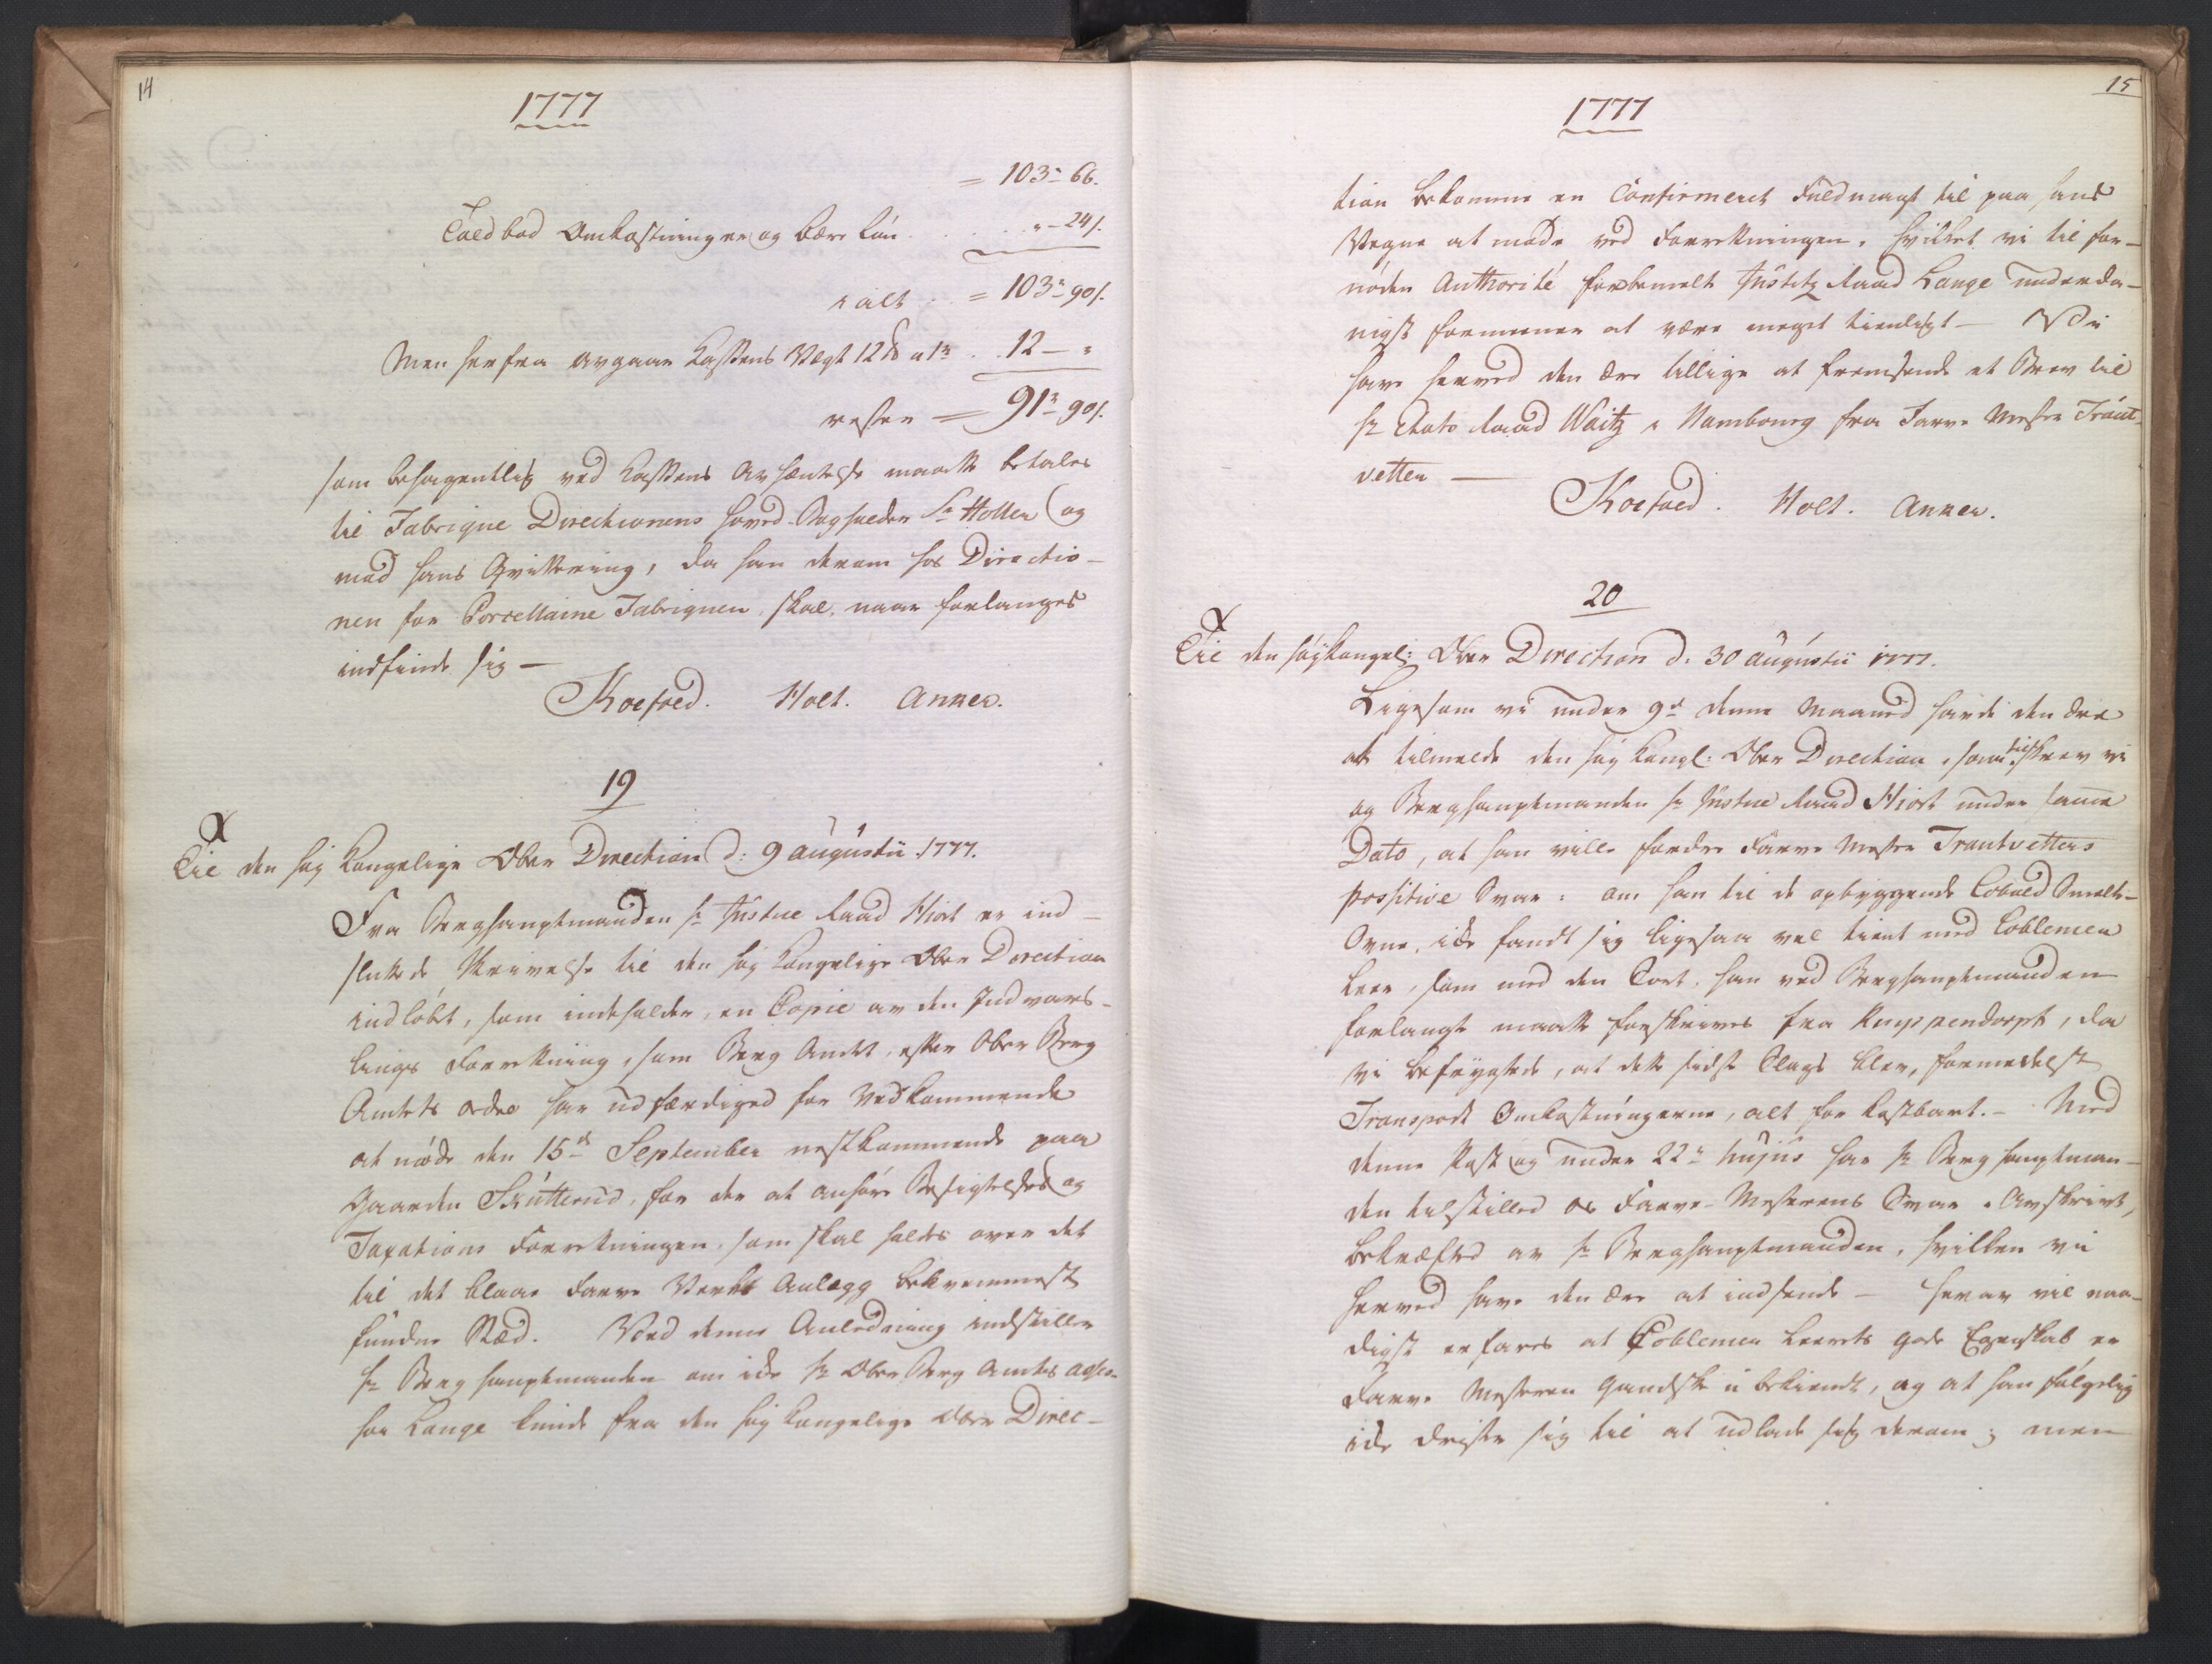 14
1777
= 103 - 66.
Toldbod Omkostninger og bære Løn . . . . . „ - 24 s.
i alt . = 103 - 90 s.
Men herfra avgaaer Kassens Vægt 12 ℔ a 1 . . 12 - „
rester = 91 - 90 s.
som behagentlig ved Kassens Avhæntelse maatte betales
til Fabrique Directionens hoved-Bogholder Sr Holter og
mod hans Qvittering, da han derom hos Directio-
nen for Porcellaine Fabriquen, skal, naar forlanges
indfinde sig —
Koefoed. Holt. Anker.
19
Til den høy Kongelige Ober Direction d: 9 augustii 1777.
Fra Berghauptmanden Hr Justice Raad Hiort er ind-
sluttede Skrivelse til den høy Kongelige Ober Direction
indløbt, som indeholder, en Copie av den Indvars-
lings Forretning, som Berg Amtet, efter Ober Berg
Amtets ordre har udfærdiged for Vedkommende
at møde den 15de September nestkommende paa
Gaarden Skutterud, for der at anhøre Besigtelses og
Taxations Forretningen, som skal holdes over det
til det blaae Farve Verks Anlægg bekvemmest
fundne Stæd. Ved denne Anledning indstiller
Hr Berghauptmanden om ide Hr Ober Berg Amts asses-
sor Lange kunde fra den høy Kongelige Ober Direc-
15
1777
tion bekomme en Confirmeret Fuldmagt til paa hans
Vegne at møde ved Forretningen, hvilket vi til for-
nøden Authorité forbemelt Justitz Raad Lange underda-
nigst formeener at være meget tienligt — Vi
have herved den Ære tillige at fremsende et Brev til
Hr Etats Raad Waitz i Nambourg fra Farve Mester Traut-
vetter —
Koefoed. Holt. Anker.
20
Til den høyKongel: Ober Direction d: 30 augustii 1777.
Ligesom vi under 9de denne Maaned havde den Ære
at tilmelde den høy Kongl: Ober Direction, saa tilskrev vi
og Berghauptmanden Hr Justice Raad Hiort under samme
Dato, at han ville fordre Farve Mester Trautvetters
possitive Svar: om han til de opbyggende Cobold Smelte-
Ovne, ide fandt sig ligesaa vel tient med Coblemer
Leer, som med den Sort, han ved Berghauptmanden
forlangte maatte forskrives fra Kuyppendorph, da
vi befrygtede, at dette sidste Slags blev, formedelst
Transport Omkostningerne, alt for kostbart. — Med
denne Post og under 22de hujus har Hr Berghauptman-
den tilstilled os Farve-Mesterens Svar i Avskrivt,
bekræfted av Hr Berghauptmanden, hvilken vii
herved have den Ære at indsende — herav vil naa-
digst erfares at Coblemer Leerets gode Egenskab er
Farve Mesteren gandske ubekiendt, og at han følgelig
ide drister sig til at udlade sig derom; men